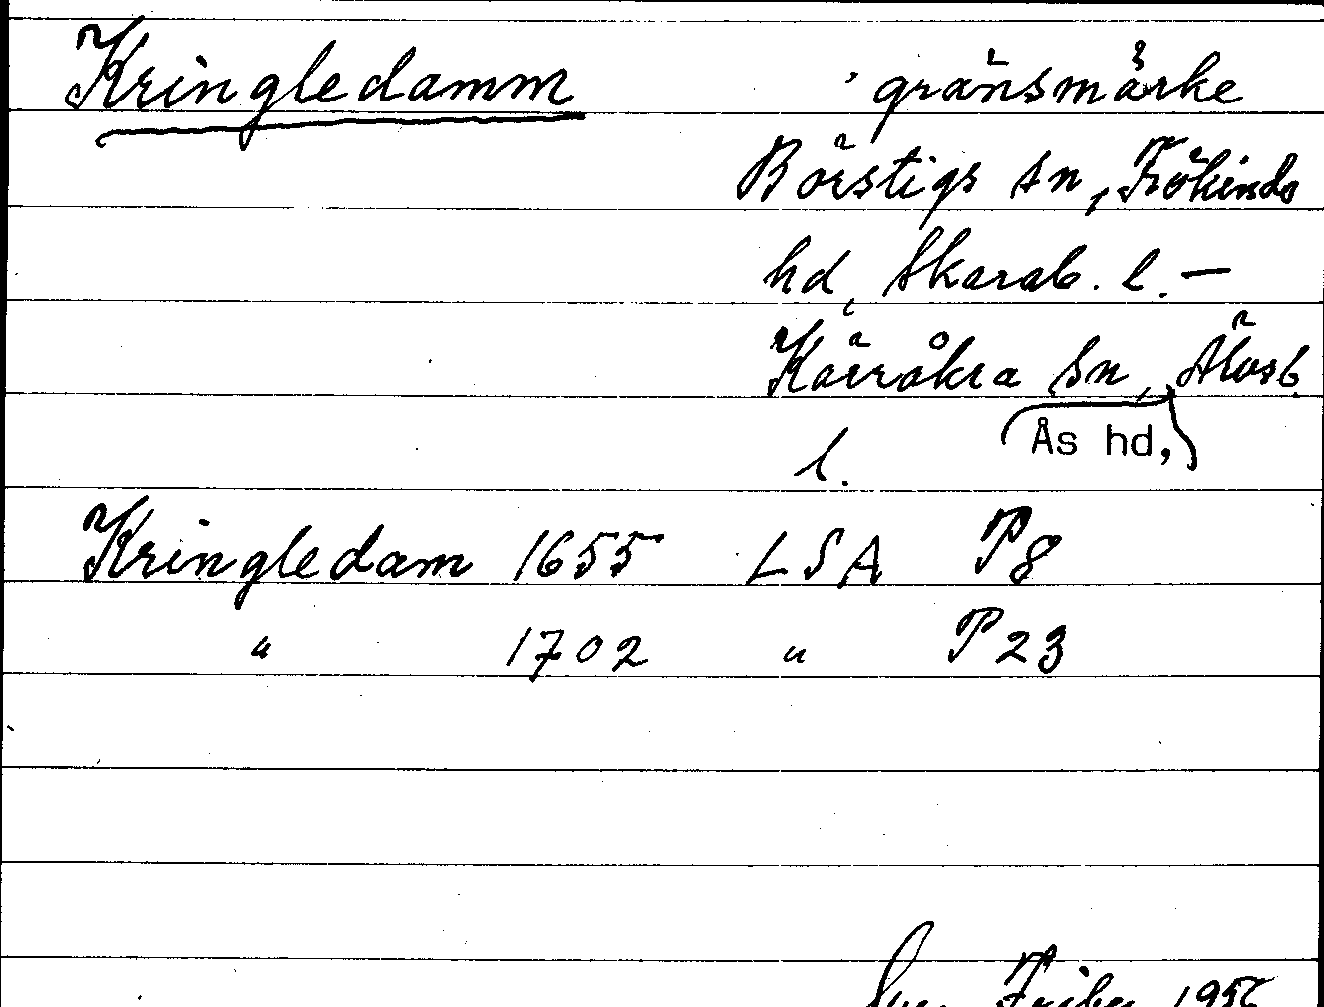 Kringledamm gränsmärke
Börstigs sn, Frökinds
hd, Skarab. l. —
Kärråkra sn, Älvsb.
Ås hd,
l.
Kringledam 1655 LSA P8
" 1702 " P23